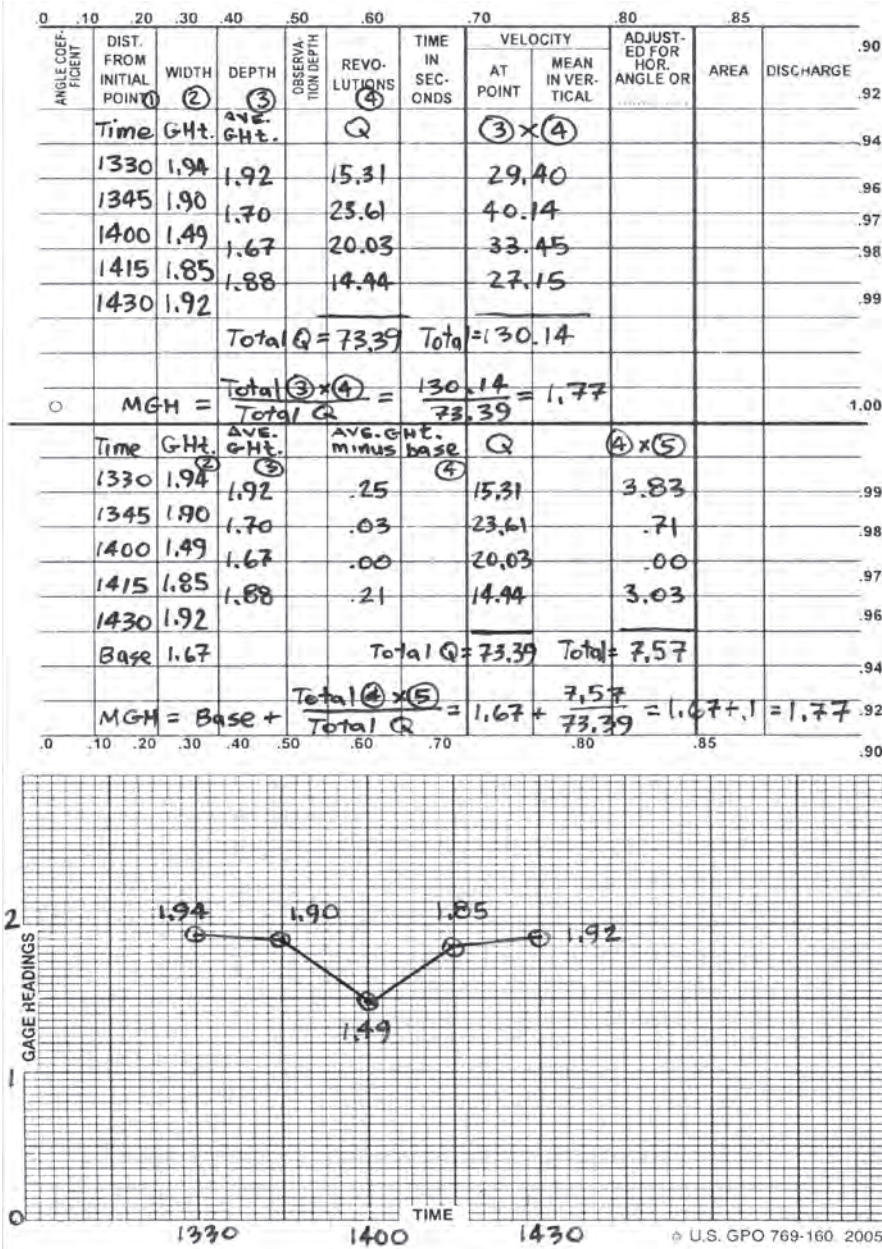 .0 .10 .20 .30 .40 .50 .60 .70 .80 .85
ANGLE COEF-FICIENT DIST. FROM INITIAL POINT ① WIDTH ② DEPTH ③ OBSERVA-TION DEPTH REVO-LUTIONS ④ TIME IN SEC-ONDS VELOCITY AT POINT MEAN IN VER-TICAL ADJUST-ED FOR HOR. ANGLE OR AREA DISCHARGE .90
.92
Time GHt. AVE. GHt. Q ③×④ .94
1330 1.94
1.92 15.31 29.40 .96
1345 1.90
1.70 23.61 40.14 .97
1400 1.49
1.67 20.03 33.45 .98
1415 1.85
1.88 14.44 27.15
1430 1.92 .99
Total Q = 73.39 Total = 130.14
MGH = Total ③×④ / Total Q = 130.14 / 73.39 = 1.77
1.00
Time GHt. ② AVE. GHt. ③ AVE. GHt. minus base ④ Q ④×⑤
1330 1.94
1.92 .25 15.31 3.83 .99
1345 1.90
1.70 .03 23.61 .71 .98
1400 1.49
1.67 .00 20.03 .00 .97
1415 1.85
1.88 .21 14.44 3.03 .96
1430 1.92
Base 1.67 Total Q = 73.39 Total = 7.57 .94
MGH = Base + Total ④×⑤ / Total Q = 1.67 + 7.57 / 73.39 = 1.67+.1 = 1.77 .92
.0 .10 .20 .30 .40 .50 .60 .70 .80 .85 .90
1.94 1.90 1.85
2 1.92
GAGE HEADINGS
1.49
1
0 TIME
1330 1400 1430 U.S. GPO 769-160 2005